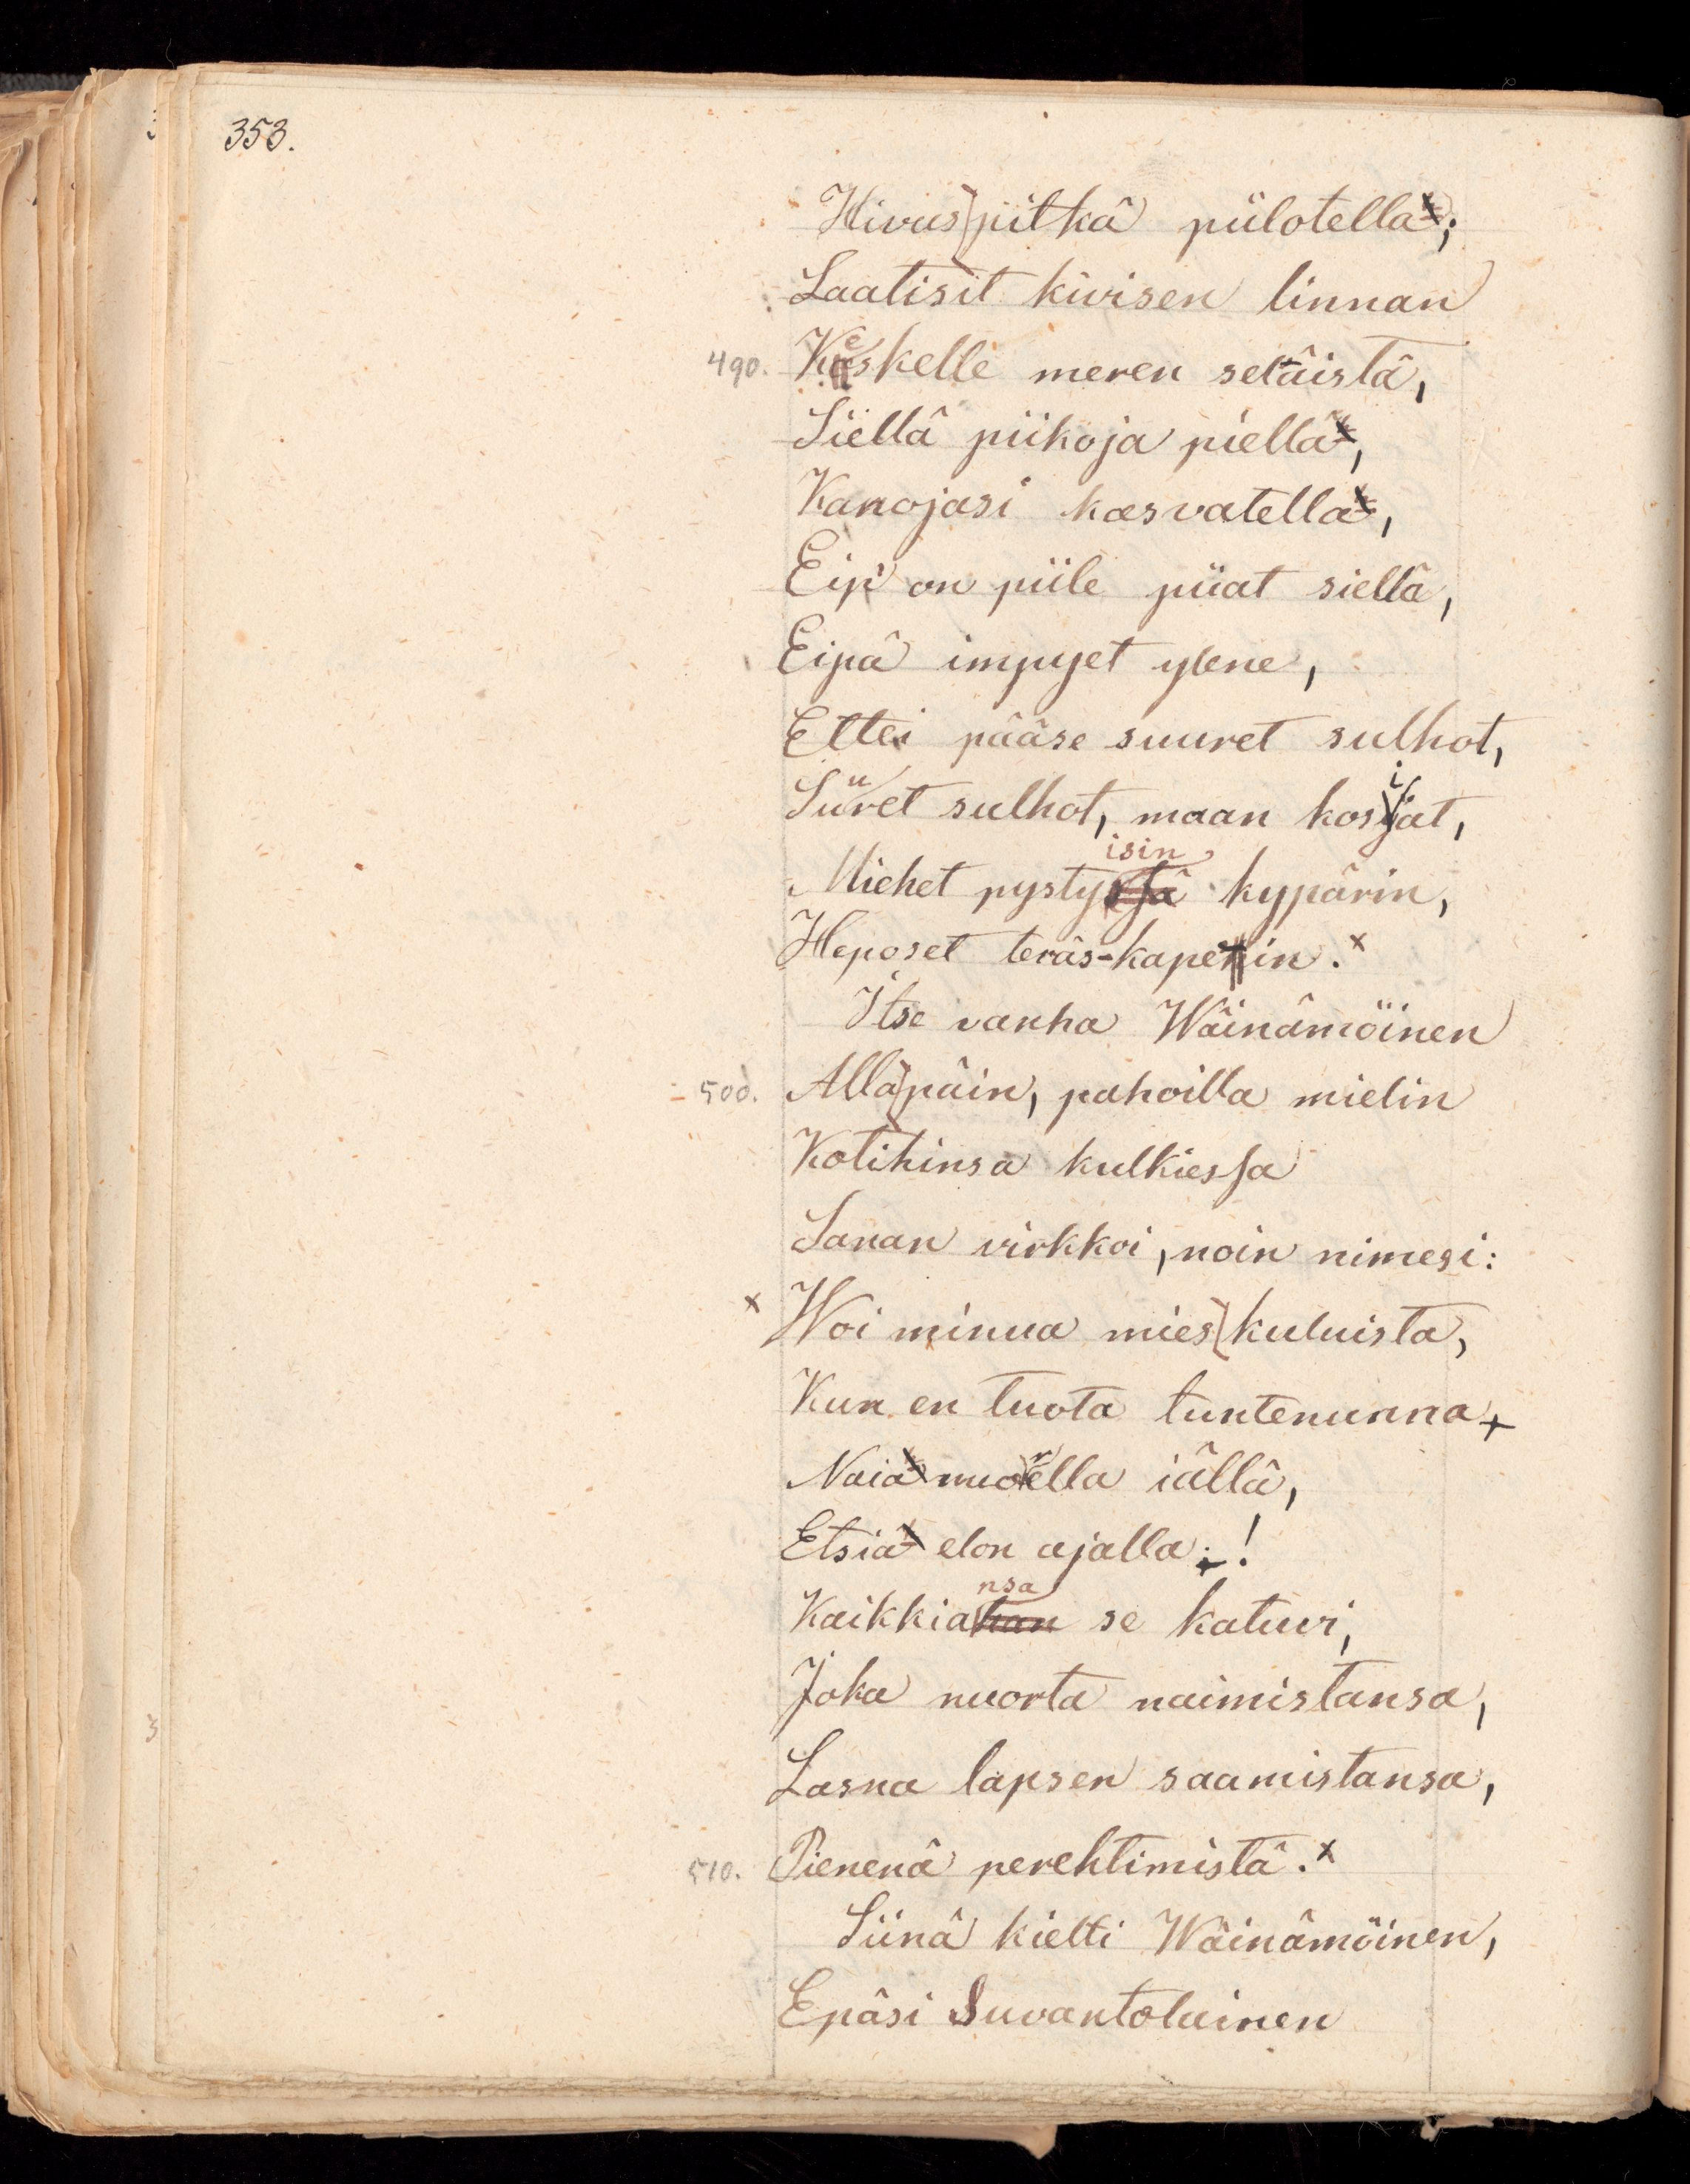 353.
Hivus pitkä piilotella;
Laatisit kivisen linnan
490. Keskelle meren seläistä,
Siellä piikoja piellä,
Kanojasi kasvatella,
Eip' on piile piiat siellä,
Eipä impyet ylene,
Ettei pääse suuret sulhot,
Suuret sulhot, maan kosijat,
isin
Miehet pystyssä kypärin,
Heposet teräs-kapehin. x
Itse vanha Wäinämöinen
500. Alla päin, pahoilla mielin
Kotihinsa kulkiessa
Sanan virkkoi, noin nimesi:
x Woi minua mies kuluista,
Kun en tuota tuntenunna
Naia nuorella iällä,
Etsiä elon ajalla!
nsa
Kaikkiahan se katuvi,
Joka nuorta naimistansa,
Lasna lapsen saamistansa,
510. Pienenä perehtimistä. x
Siinä kielti Wäinämöinen,
Epäsi Suvantolainen